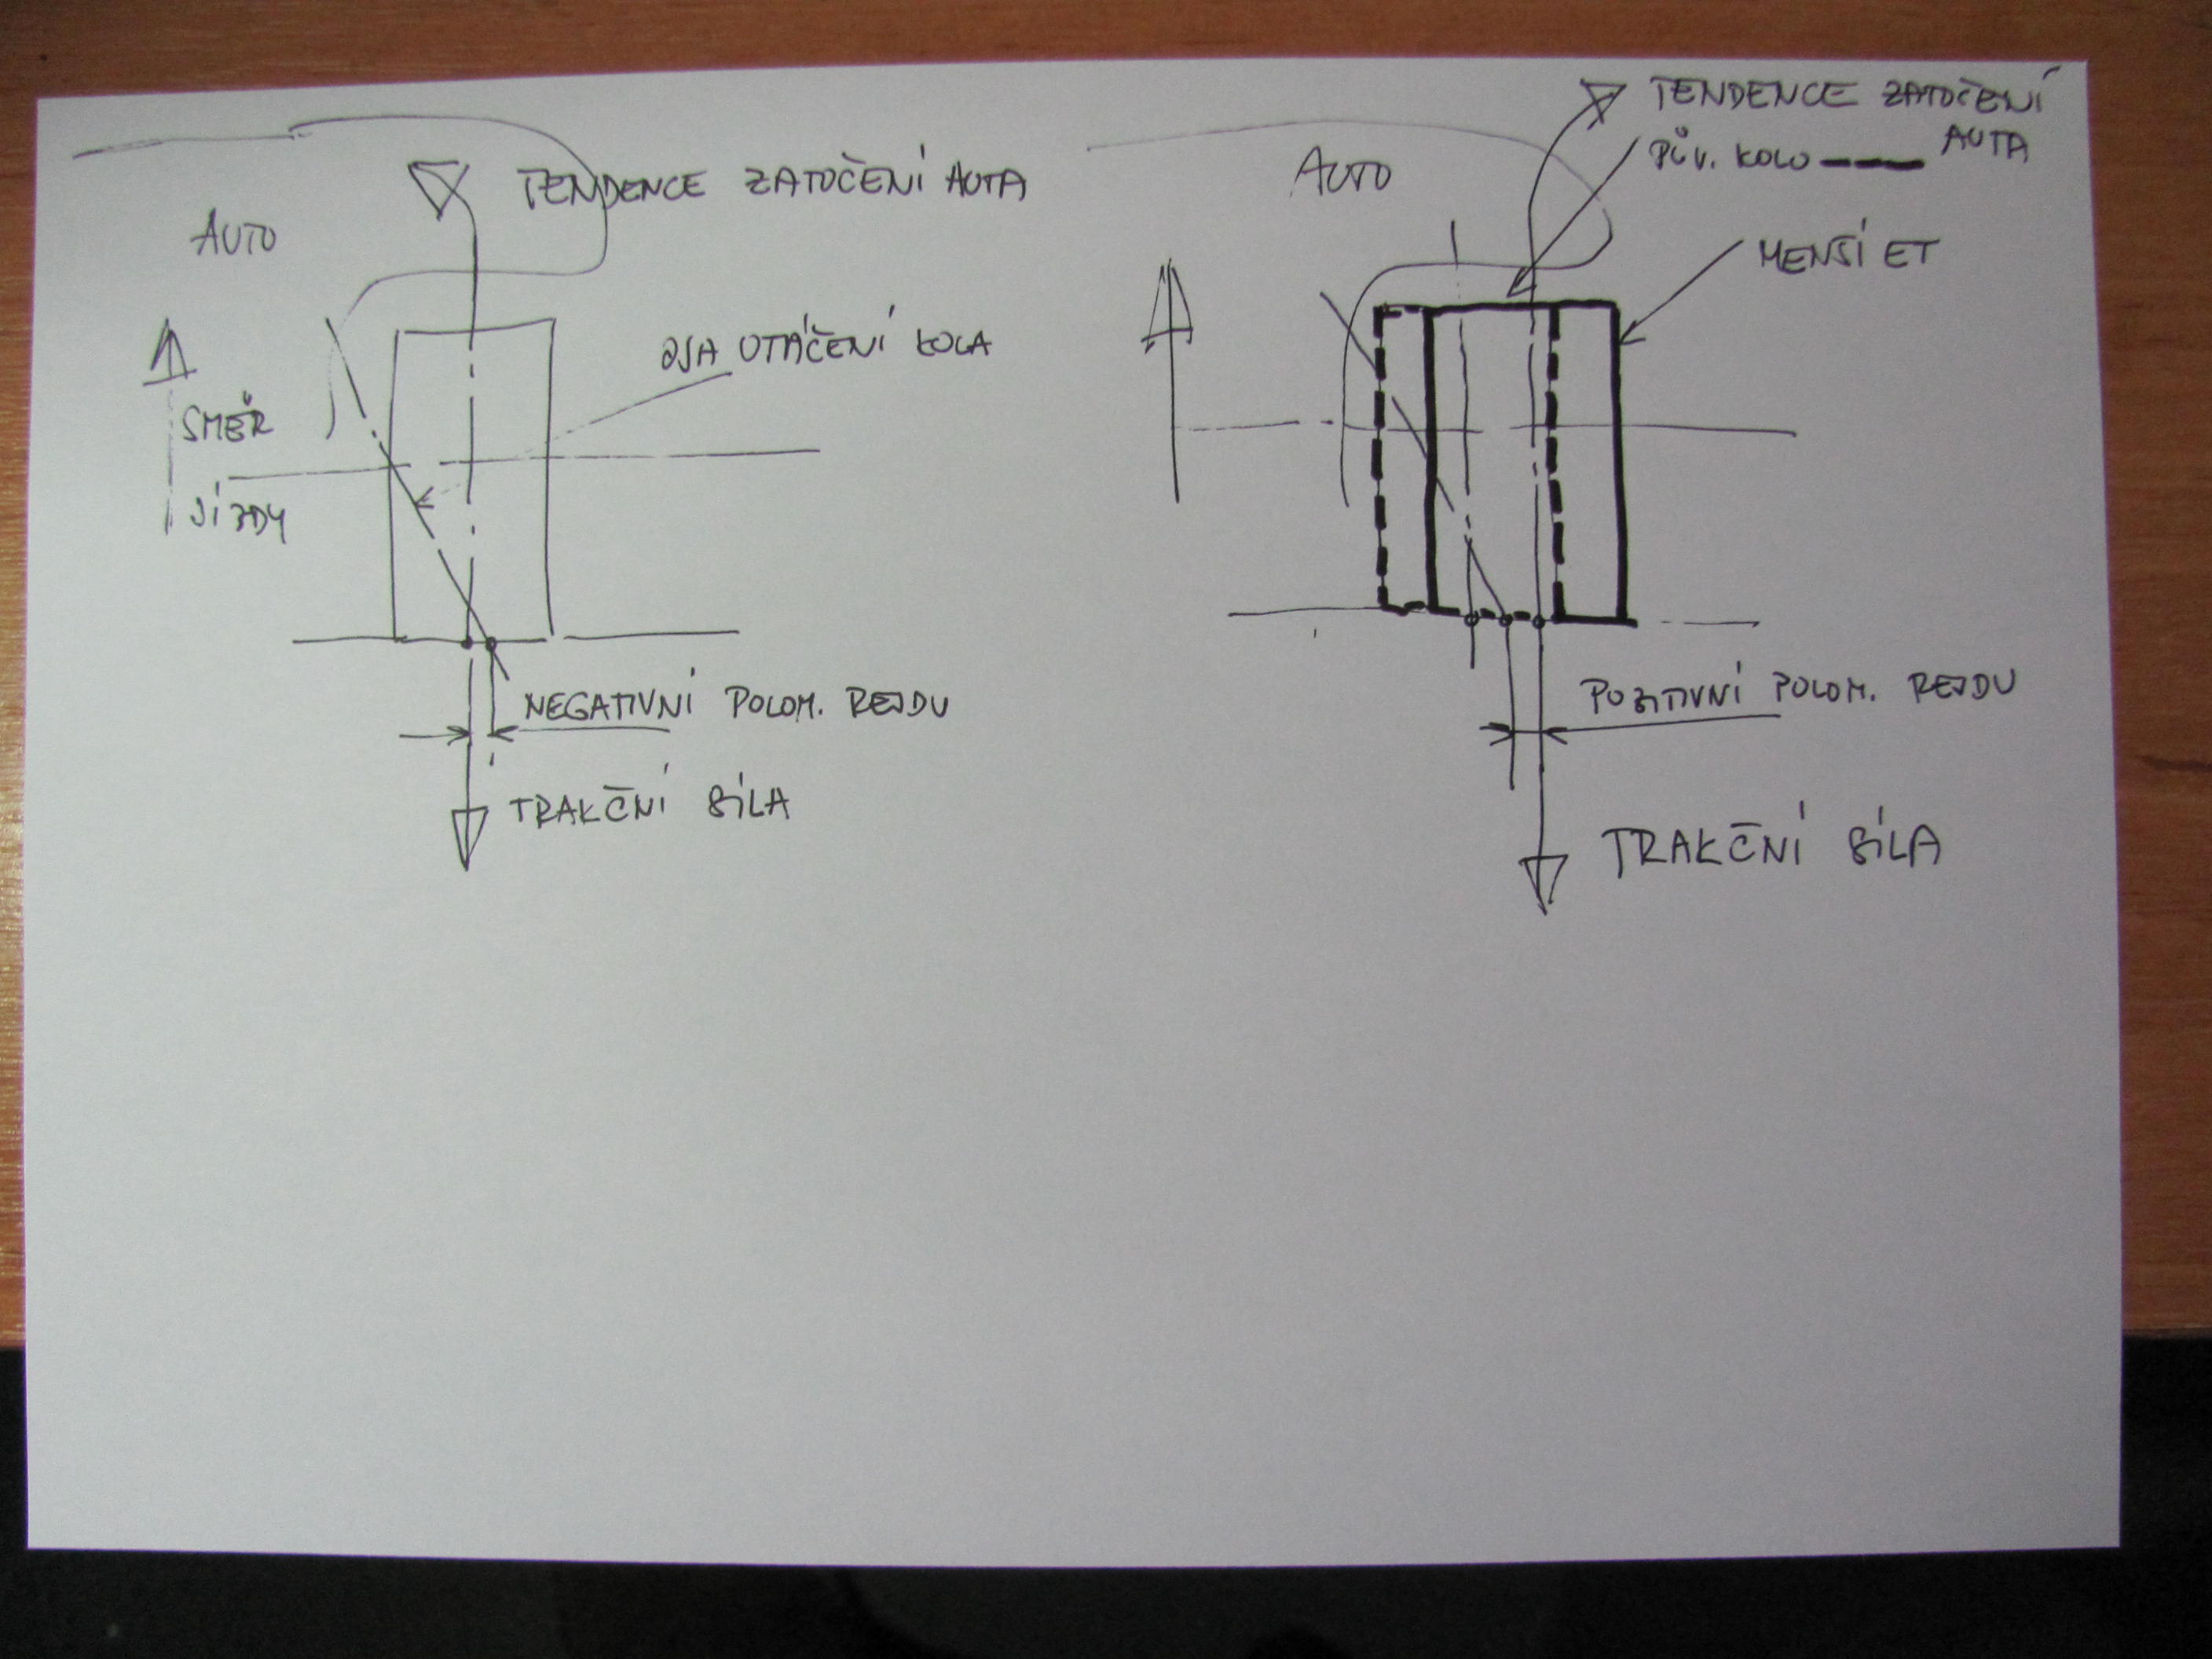 TENDENCE ZATOČENÍ AUTA
AUTO
OSA OTÁČENÍ KOLA
SMĚR
JÍZDY
NEGATIVNÍ POLOM. REJDU
TRAKČNÍ SÍLA
TENDENCE ZATOČENÍ
AUTA
PŮV. KOLO
AUTO
MENŠÍ ET
POZITIVNÍ POLOM. REJDU
TRAKČNÍ SÍLA